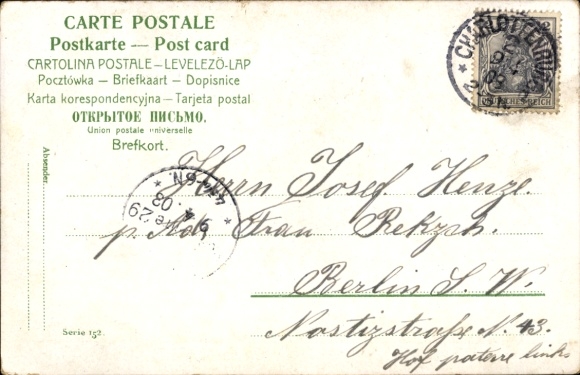 CARTE POSTALE
Postkarte — Post card
CARTOLINA POSTALE – LEVELEZÖ-LAP
Pocztówka – Briefkaart – Dopisnice
Karta korespondencyjna – Tarjeta postal
ОТКРЫТОЕ ПИСЬМО.
Union postale universelle
Brefkort.
Absender.
CHARLOTTENBURG
DEUTSCHES REICH
Herrn Josef Henze.
p. Adr. Frau
Berlin S. W.
Nostizstraße N. 43.
Hof paterre links
Serie 152.